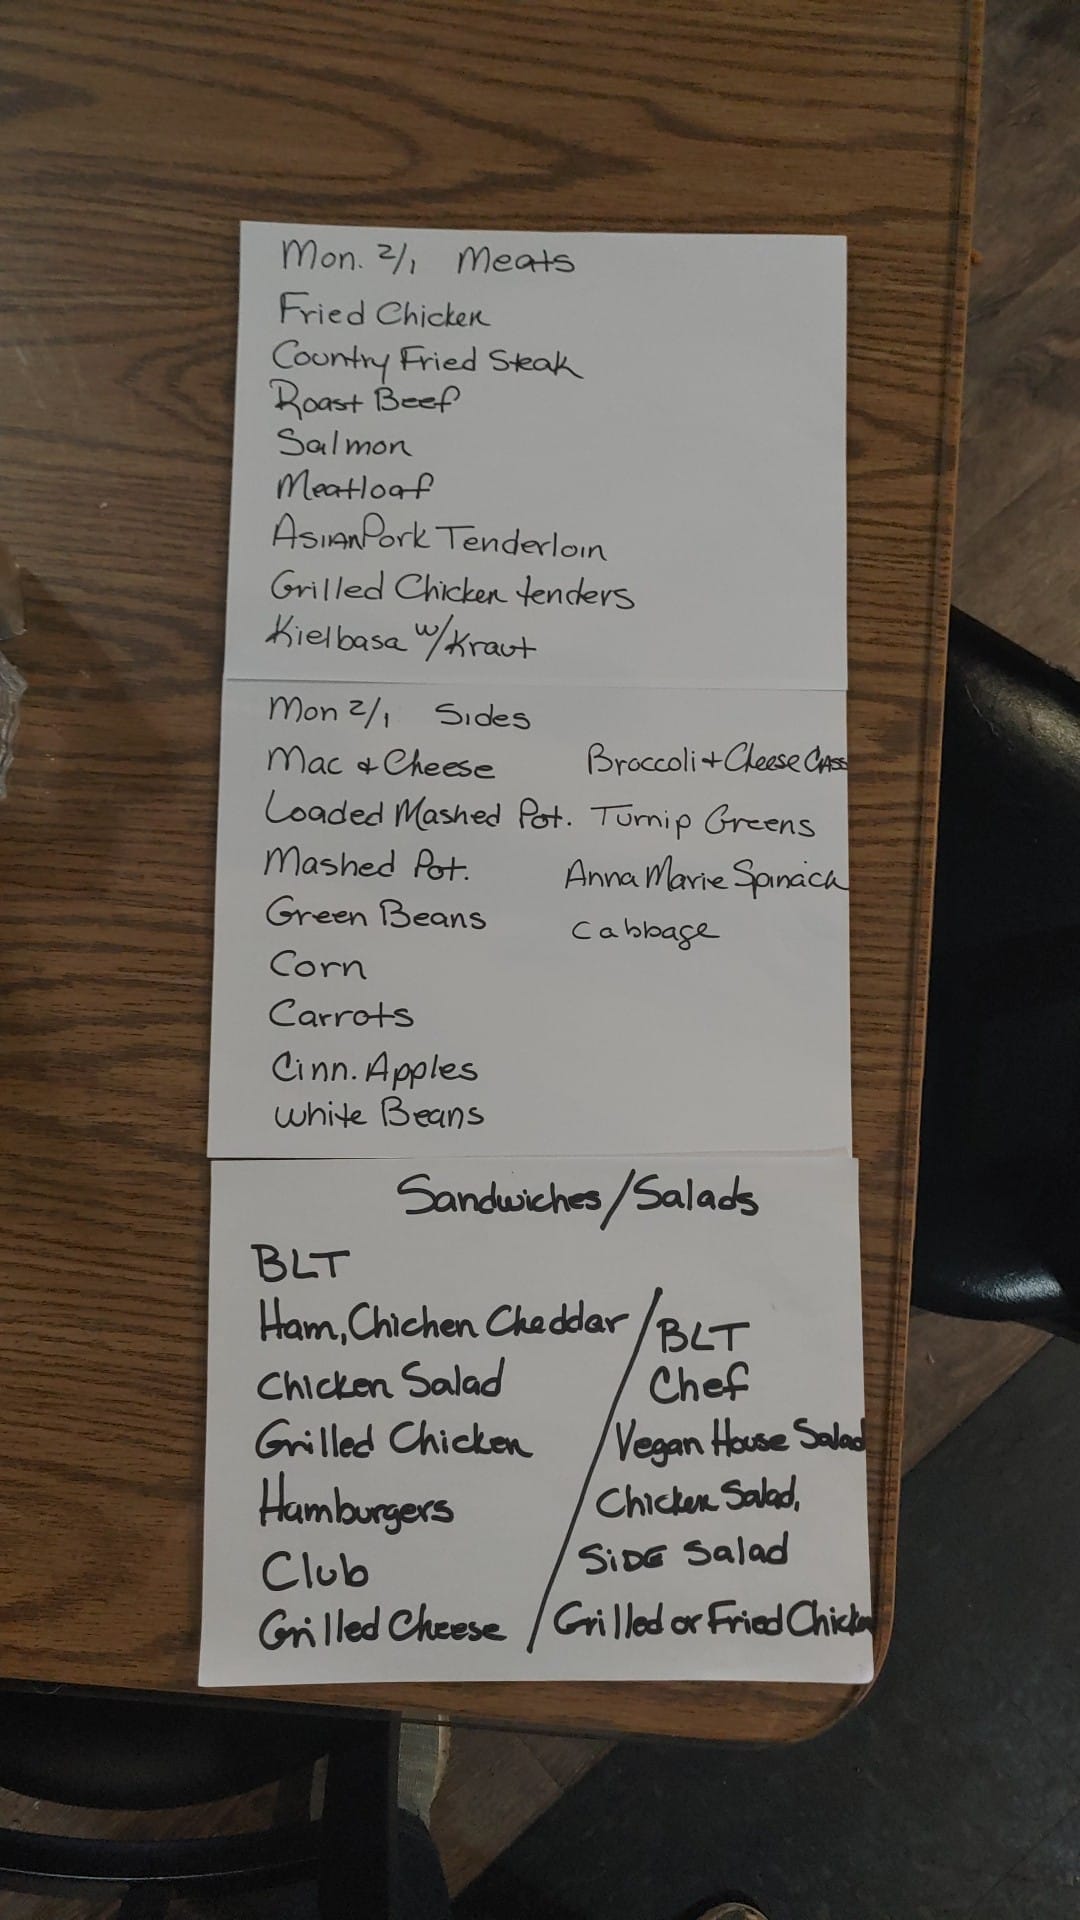 Mon. 2/1 Meats
Fried Chicken
Country Fried Steak
Roast Beef
Salmon
Meatloaf
Asian Pork Tenderloin
Grilled Chicken tenders
Kielbasa w/Kraut
Mon 2/1 Sides
Mac & Cheese
Loaded Mashed Pot.
Mashed Pot.
Green Beans
Corn
Carrots
Cinn. Apples
White Beans
Broccoli + Cheese Cass
Turnip Greens
Anna Marie Spinach
Cabbage
Sandwiches/Salads
BLT
Ham, Chichen Cheddar
Chicken Salad
Grilled Chicken
Hamburgers
Club
Grilled Cheese
BLT
Chef
Vegan House Salad
Chicken Salad,
SIDE Salad
Grilled or Fried Chicken